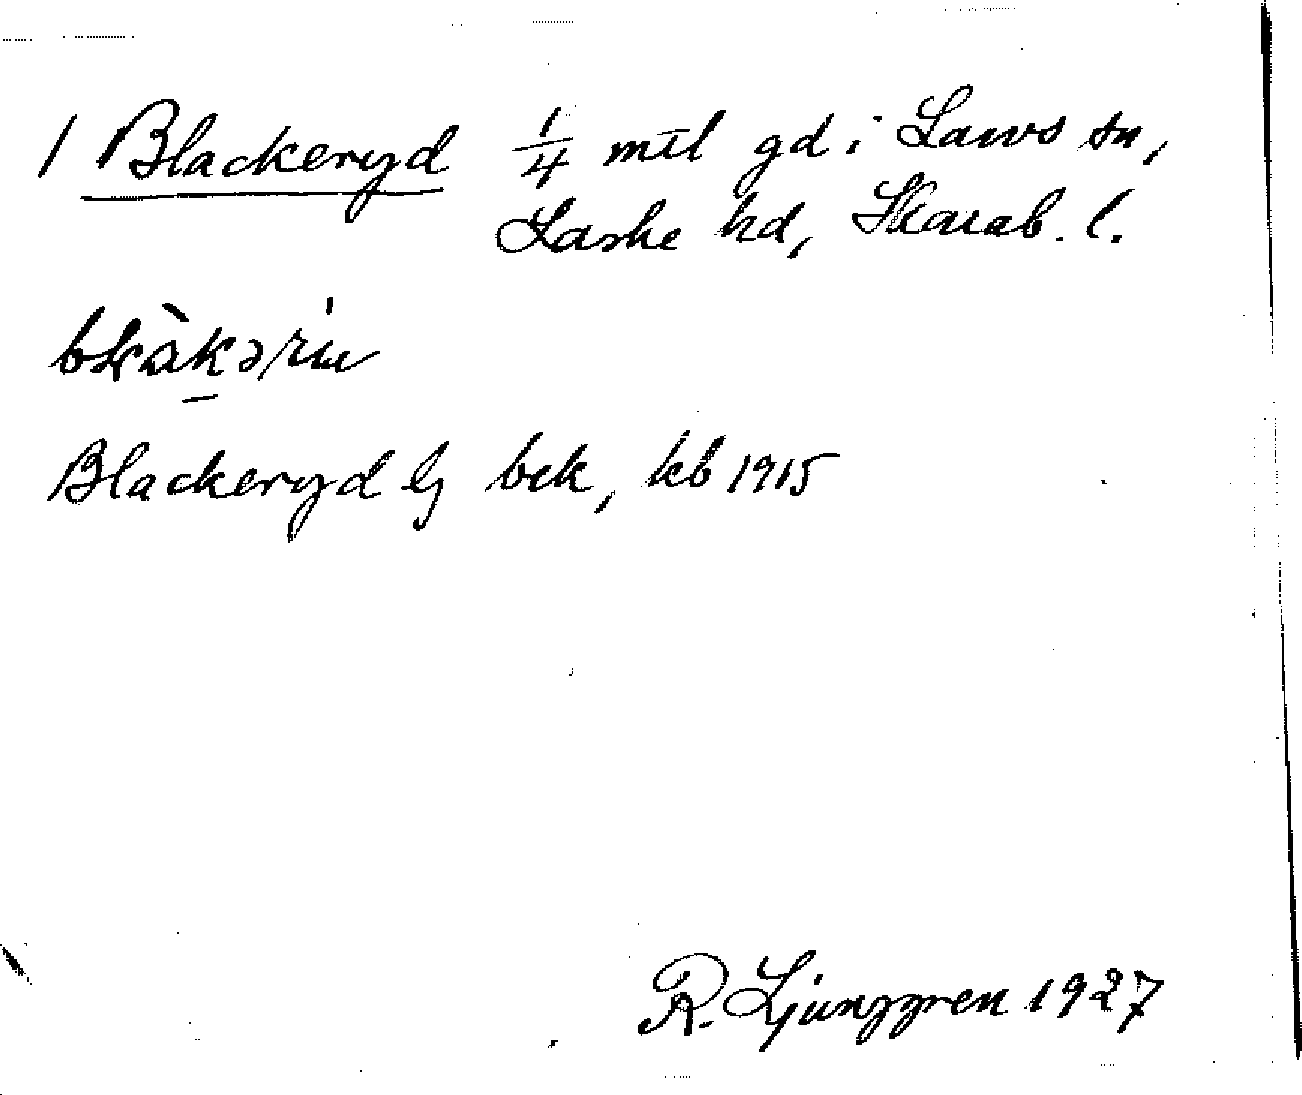 1 Blackeryd 1/4 mtl gd i Larvs sn,
Laske hd, Skarab. l.
Blackeryd lj bek, kb 1915
R. Ljunggren 1927